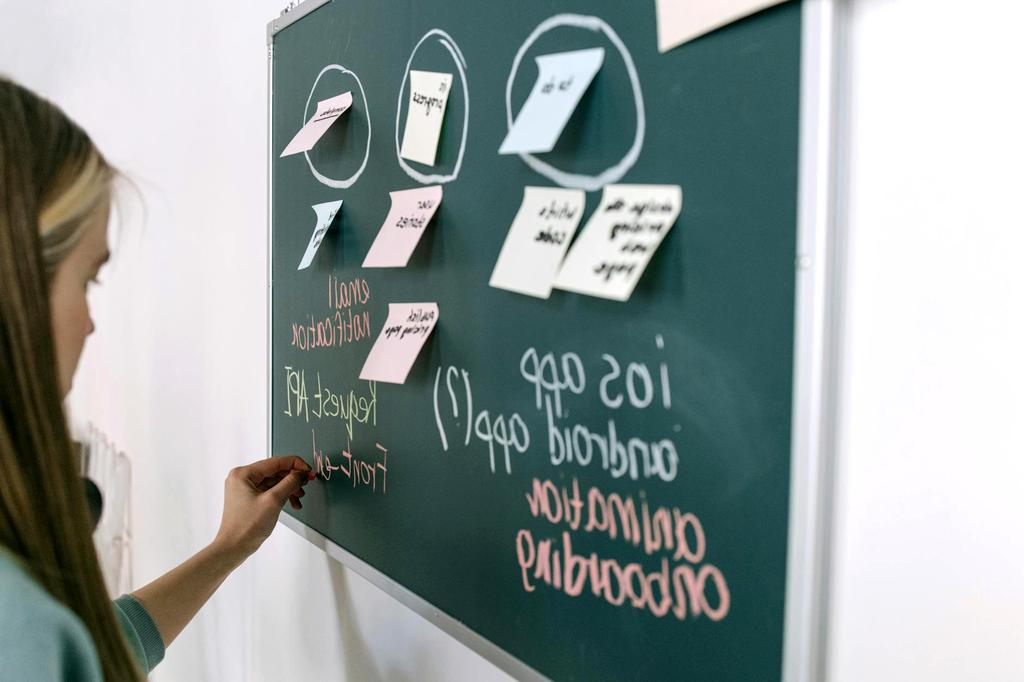 to do
in
progress
write
code
pricing
page
user
stories
publish
pricing page
ios app
android app(?)
animation
onboarding
email
notification
Request API
Front-end